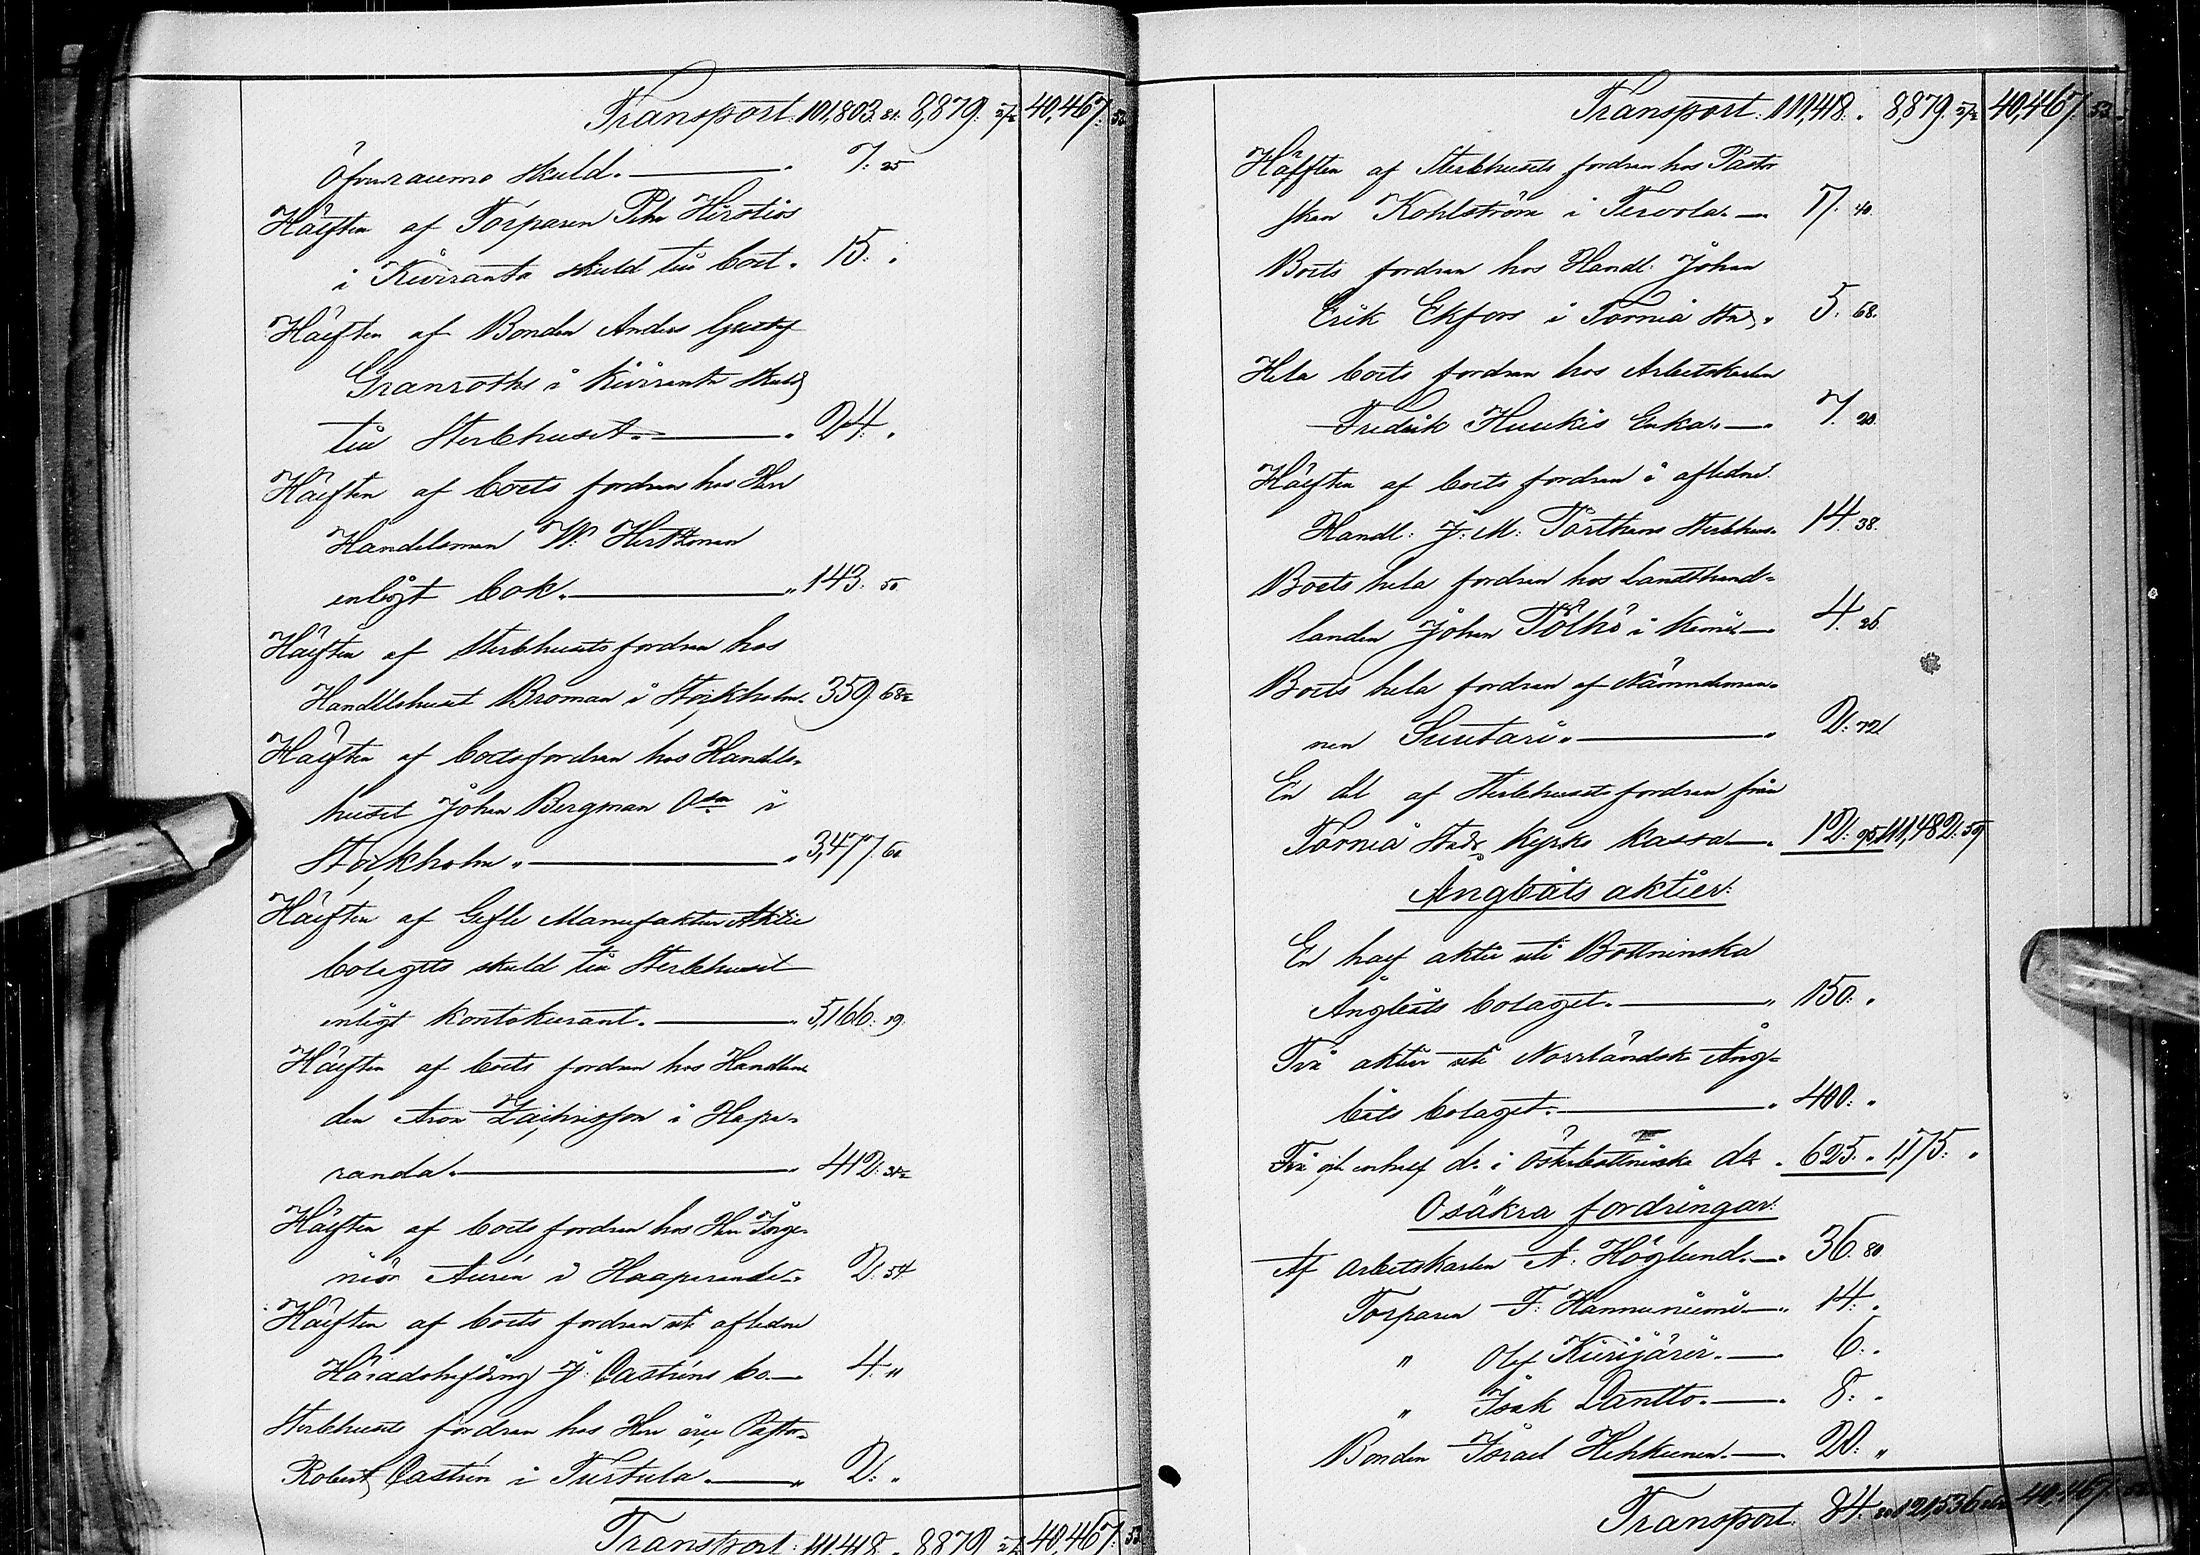 Transport: 101,803. 81. 8,879. 57½ 40,467: 53
Öfvertorneå skuld. 7: 25
Hälften af Torparen Petter Hirstiös
i Kiviranta skuld till boet. 15: "
Hälften af Bonden Anders Gustaf
Granroths i Kiviranta skuld
till Sterbhuset. 24. "
Hälften af boets fordran hos Herr
Handelsman W: Hertzman
enligt bok. 143. 50
Hälften af Sterbhusets fordran hos
Handelshuset Broman i Stockholm. 359. 68½
Hälften af boets fordran hos Handels-
huset Johan Bergman i
Stockholm. 3,477. 60
Hälften af Gefle Manufaktur Aktie
bolagets skuld till Sterbhuset
enligt kontokurant. 5,166: 19.
Hälften af boets fordran hos Handlan
den Aron Zachrisson i Hapa-
randa. 412:
Hälften af boets fordran hos Herr Inge-
niör Aurén i Haaparanda. 2: 54
Hälften af boets fordran uti aflidne
Häradshöfding J: Castréns bo. 4. "
Sterbhusets fordran hos Herr Pastor
Robert Castrén i Turtula. 2: "
Transport: 111,418. " 8879 57½ 40,467: 53
Transport: 111,418. " 8,879. 57½ 40,467. 53.
Hälften af Sterbhusets fordran hos Pastor
skan Kohlström i Tervola. 17. 40.
Boets fordran hos Handl. Johan
Erik Ekfors i Torneå stad. 5. 68.
Hela boets fordran hos Arbetskarlen
Fredrik Huukis Enka. 7. 20.
Hälften af boets fordran i aflidne
Handl: J: M: Törthens Sterbhus. 14. 38.
Boets hela fordran hos Landthand-
landen Johan Pölhö i Kemi 4. 26
Boets hela fordran af Nämndeman-
nen Suutari. 2: 72
En del af Sterbhusets fordran från
Torneå Stads Kyrko kassa. 12: 95 111,482: 59
Ångbåts aktier:
En half aktie uti Bottninska
Ångbåts bolaget. 150: "
Två aktier uti Norrländska Ång-
båts bolaget. 400: "
Två och enhalf d:o i Österbottniska d:o 625. " 1,175: "
Osäkra fordringar:
Af Arbetskarlen A: Höglund. 36. 80.
Torparen F: Hannuniemi 14: "
" Olof Kurijärvi. 6: "
" Isak Lantto. 8: "
Bonden Israel Hehkunen. 20: "
Transport: 84. 80 121,536 40,467. 53